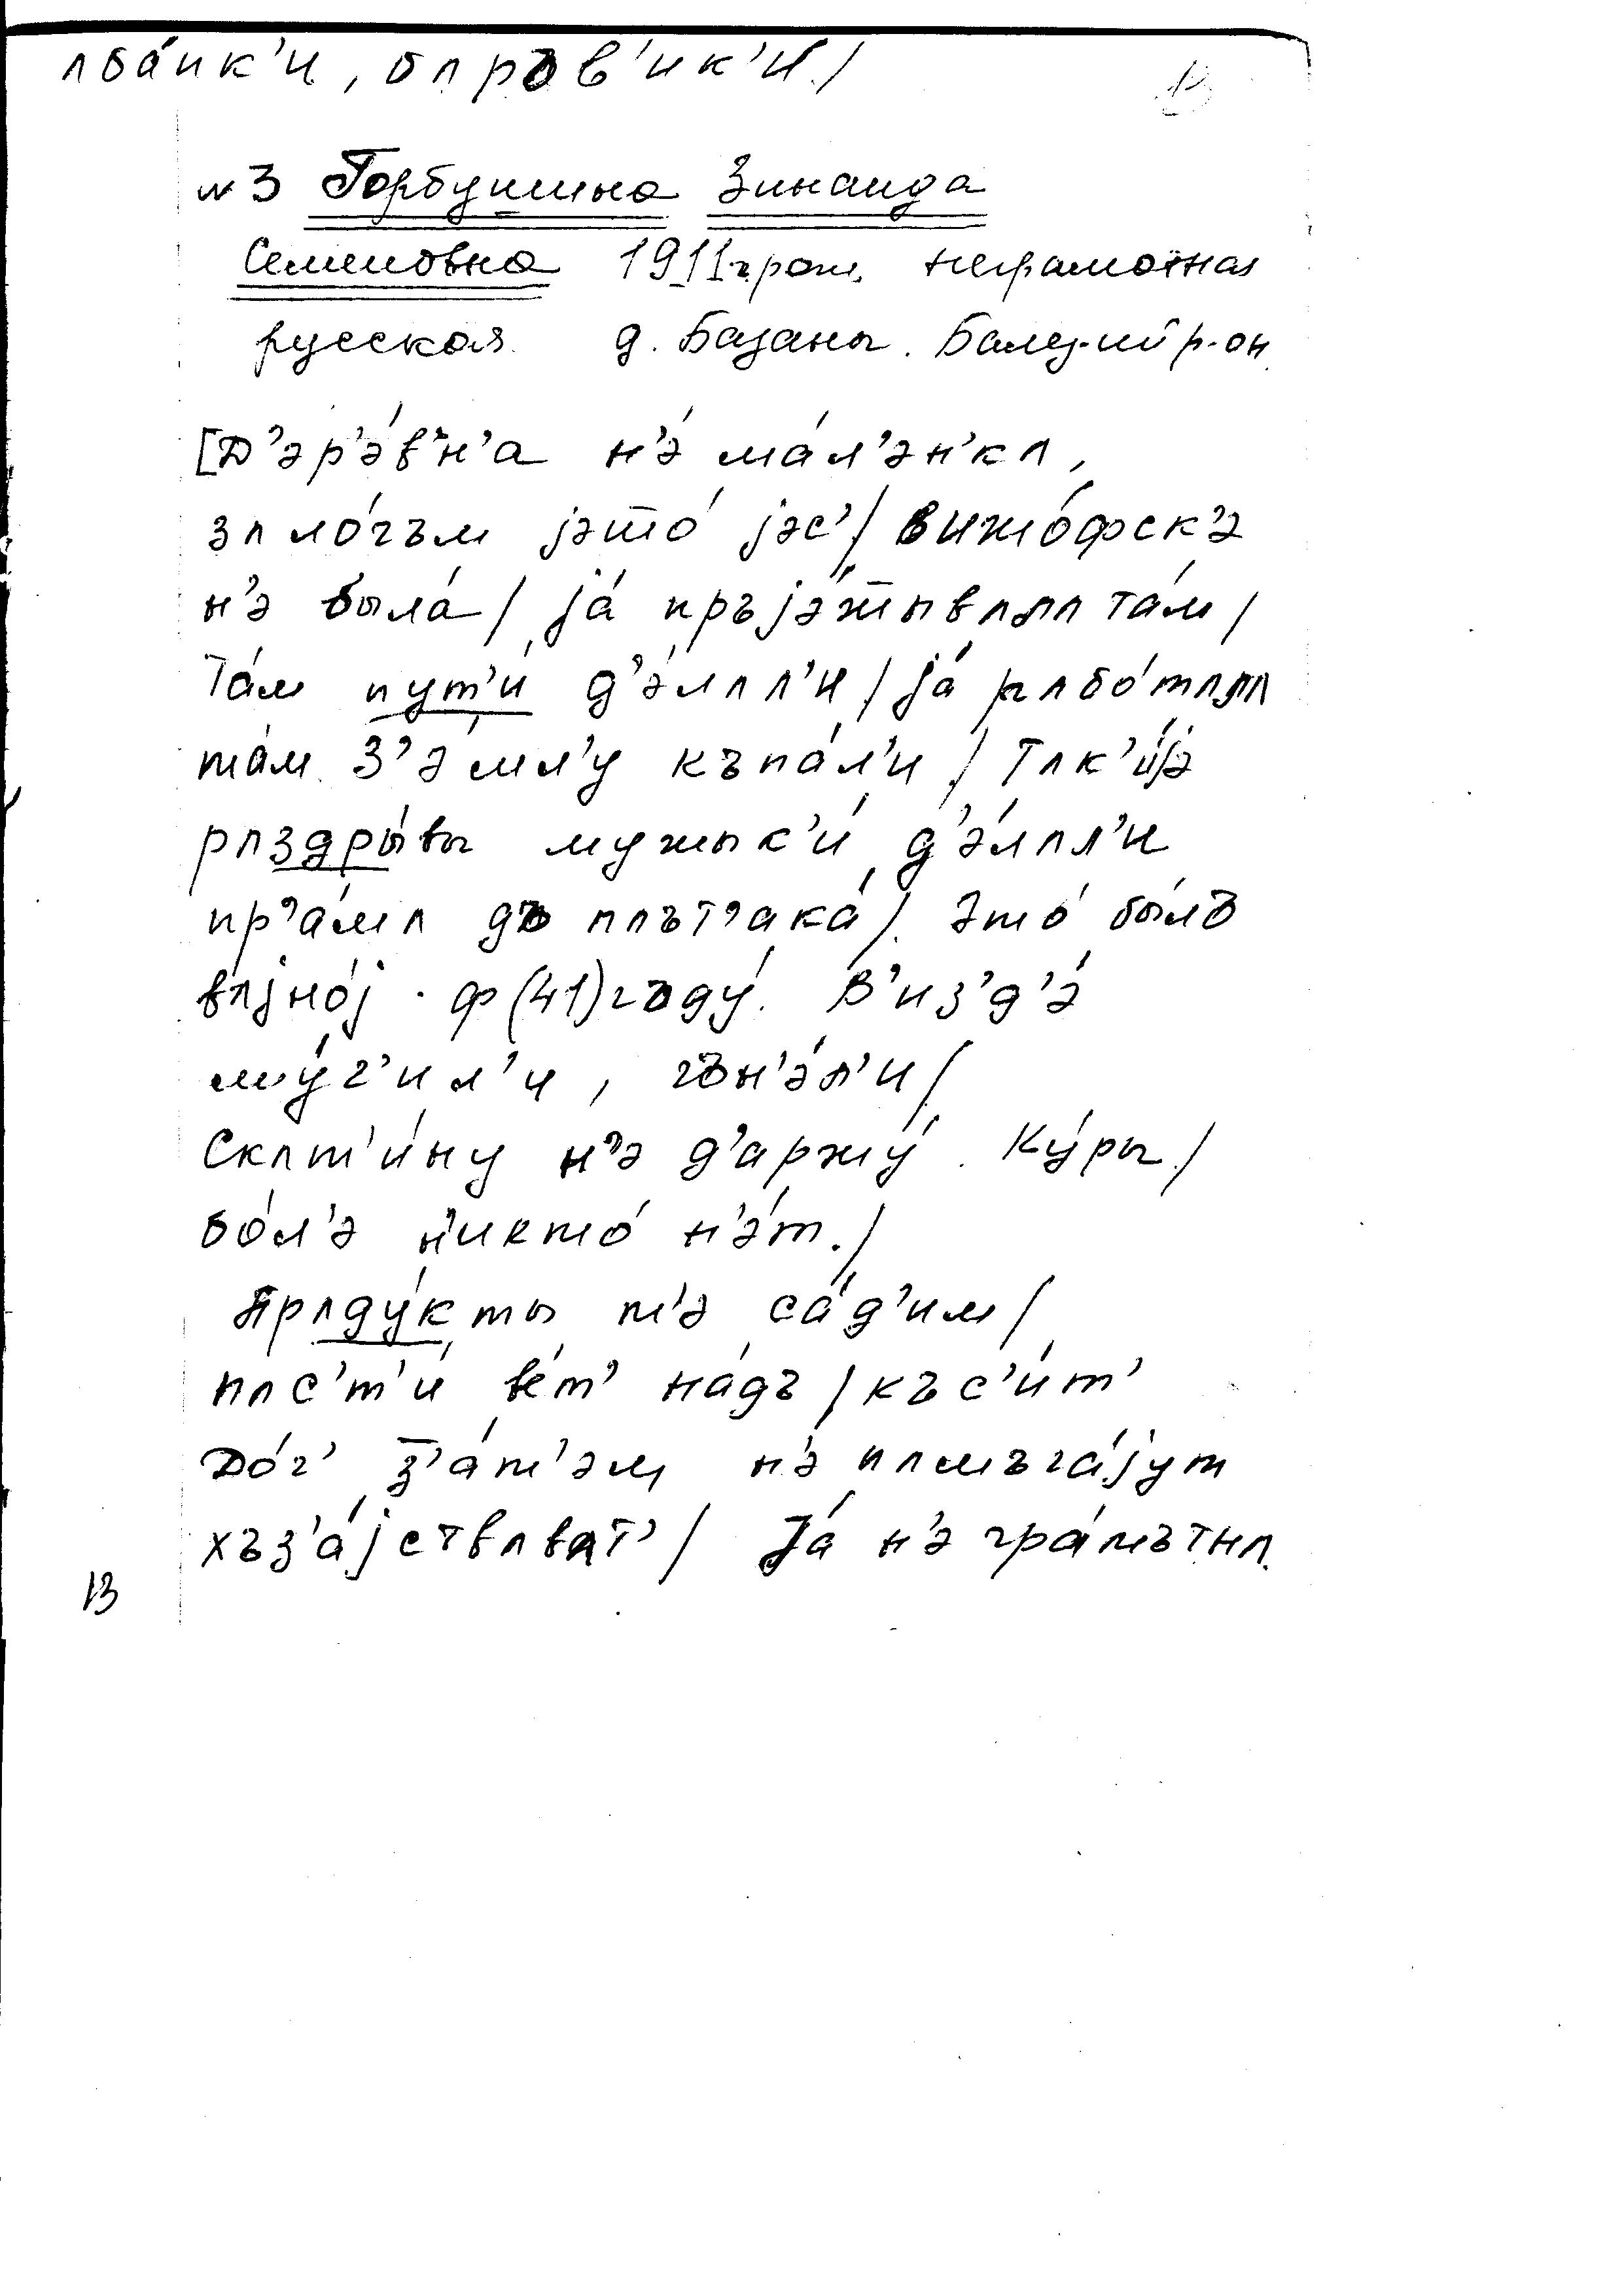 лба́ик'и, блпръв'ик'и/
13
№3 Горбушина Зинаида
Семеновна 1911г.рож. неграмотная
русская. д. Базаны. Балез-ий р-он.
[Д'эр'э́вн'а н'э́ ма́л'эн'кʌ,
зʌ ло́гъм јэто́ јэс'/ вижо́фск'э
н'э была́/ја́ пръјэ́жывʌлʌ та́м/
Та́м пут'и́ д'э́лʌл'и/ја́ рʌбо́тʌлʌ
та́м. З'э́мл'у къпа́л'и/Тʌк'и́јэ
рʌздры́вы мужык'и́ д'э́лʌл'и
пр'а́мʌ дъ пʌът'ака́/. Это́ было
вʌјно́ј. ф(41)году́. В'из'д'э́
му́г'ил'и, гън'э́л'и/
Скʌт'и́ну н'э д'аржу́. Ку́ры/
бо́л'э никто́ н'э́т./
Прʌду́кты т'э са́д'им/
пʌс'т'и́ ве́т' на́дъ/къс'и́т'
До́ч' з'а́т'эм н'э пʌмъга́јут
хъз'а́јствʌвʌт'/ Ја́ н'э гра́мътнʌ.
13